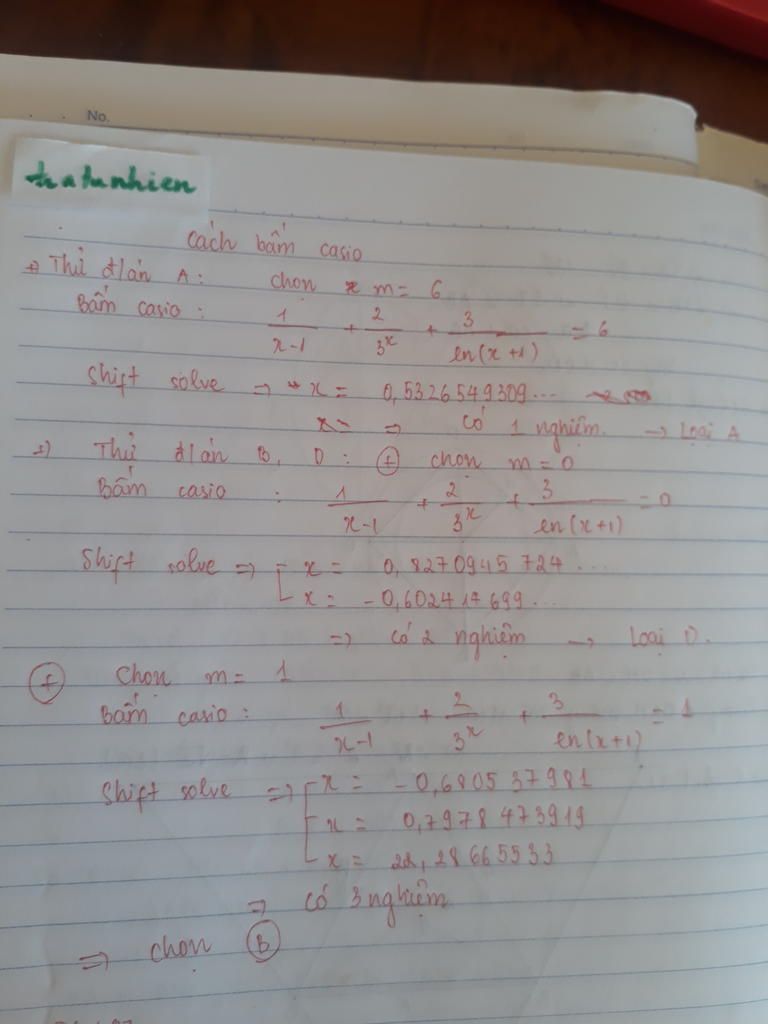 No.
tratunhien
Cách bấm casio
+) Thử đ/án A: chọn m = 6
Bấm casio: 1/(x-1) + 2/3^x + 3/ln(x+1) = 6
Shift solve => x = 0,5326549309...
x = => có 1 nghiệm. -> Loại A
+) Thử đ/án B, D: (+) chọn m = 0
Bấm casio: 1/(x-1) + 2/3^x + 3/ln(x+1) = 0
Shift solve => [ x = 0,8270945724....
x = -0,602417699...
=> có 2 nghiệm -> Loại D.
(+) Chọn m = 1
Bấm casio: 1/(x-1) + 2/3^x + 3/ln(x+1) = 1
Shift solve => [ x = -0,680537981
x = 0,7978473919
x = 22,28665533
=> có 3 nghiệm
=> chọn (B)